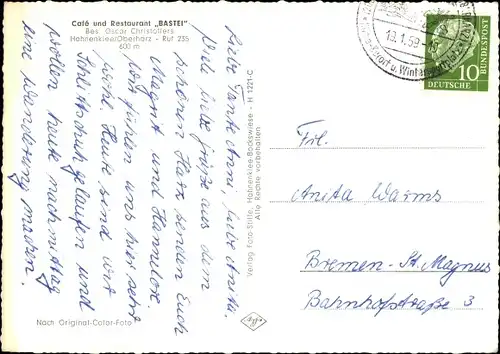 Café und Restaurant „BASTEI"
Bes. Oscar Christoffers
Hahnenklee/Oberharz - Ruf 235
600 m
Liebe Tante Änni, liebe Anita.
Viele liebe Grüße aus dem
schönen Harz senden Euch
Magnt und Hannelore.
Wir fühlen uns hier sehr
wohl. Heute sind wir
Schlittschuh gelaufen und
wollen heute nachmittag
eine Wanderung machen.
Nach Original-Color-Foto
Verlag Foto-Stille, Hahnenklee-Bockswiese - H 1221-C
Alle Rechte vorbehalten
19.1.59
Kurort u. Winter
10
DEUTSCHE
BUNDESPOST
Frl.
Anita Warms
Bremen-St. Magnus
Bahnhofstraße 3